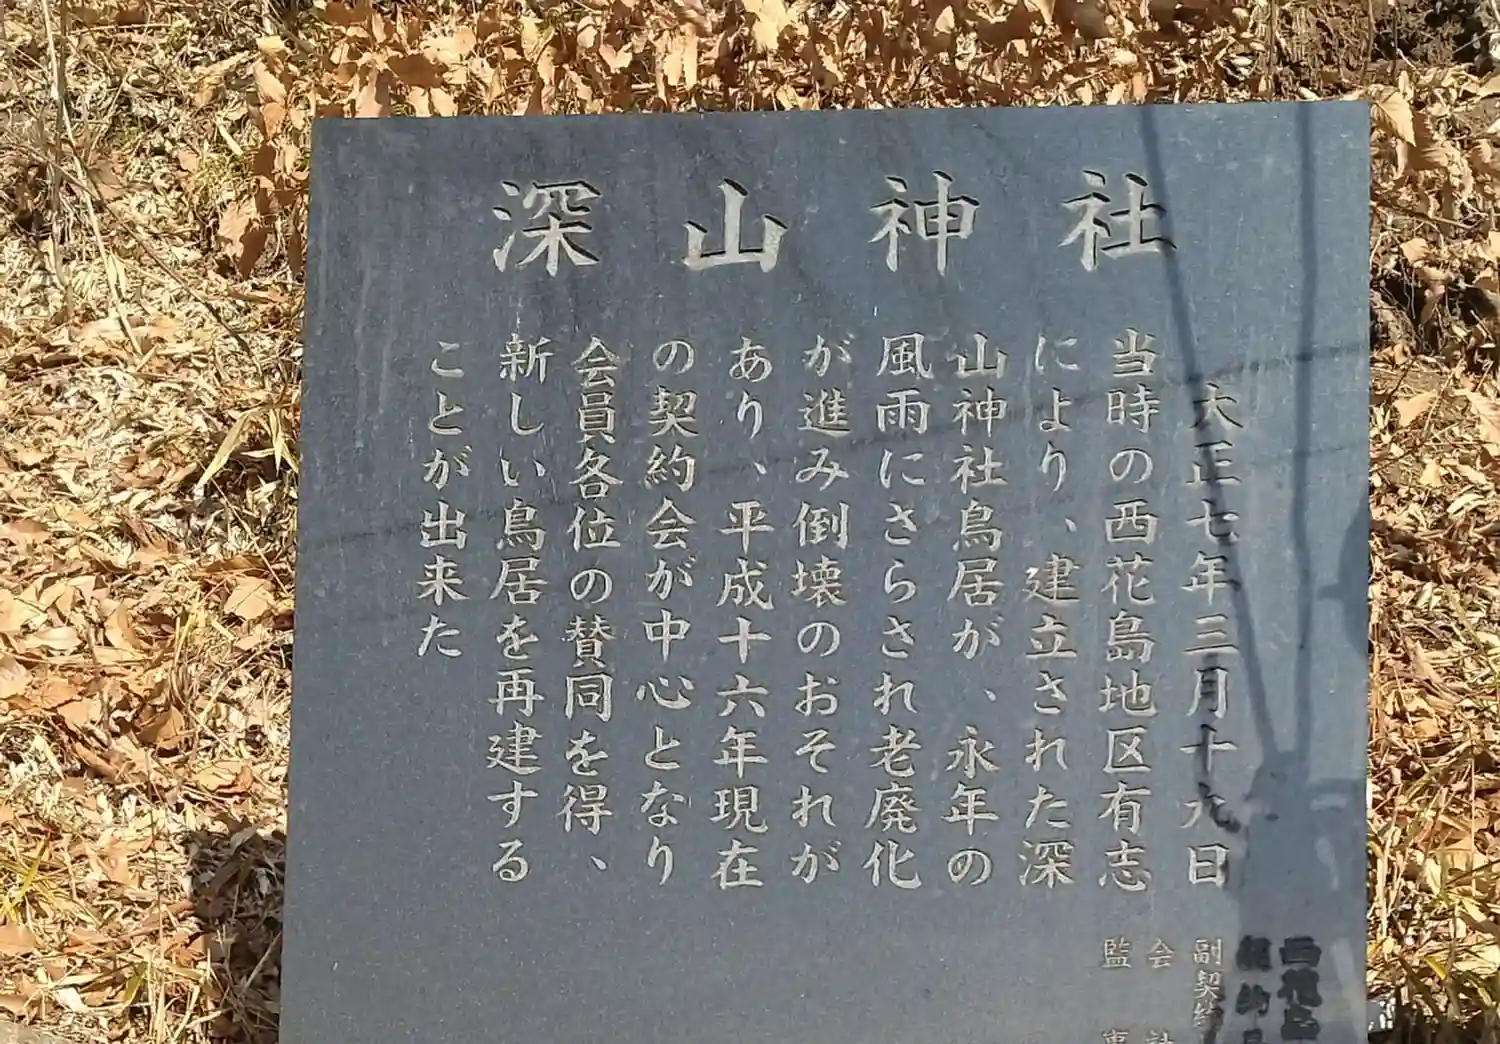 深山神社
大正七年三月十九日
当時の西花島地区有志
により、建立された深
山神社鳥居が、永年の
風雨にさらされ老廃化
が進み倒壊のおそれが
あり、平成十六年現在
の契約会が中心となり
会員各位の賛同を得、
新しい鳥居を再建する
ことが出来た
西花島
契約
副契約
会計
監事